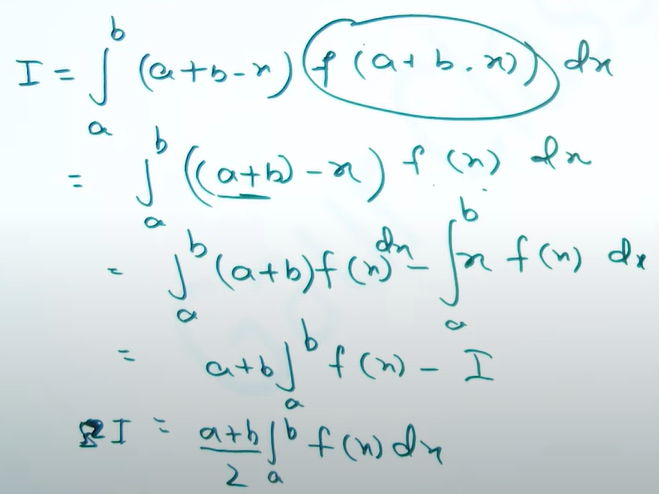 I = ∫_a^b (a+b-x) f(a+b-x) dx
= ∫_a^b ((a+b)-x) f(x) dx
= ∫_a^b (a+b)f(x) dx - ∫_a^b x f(x) dx
= a+b ∫_a^b f(x) - I
2I = (a+b)/2 ∫_a^b f(x) dx